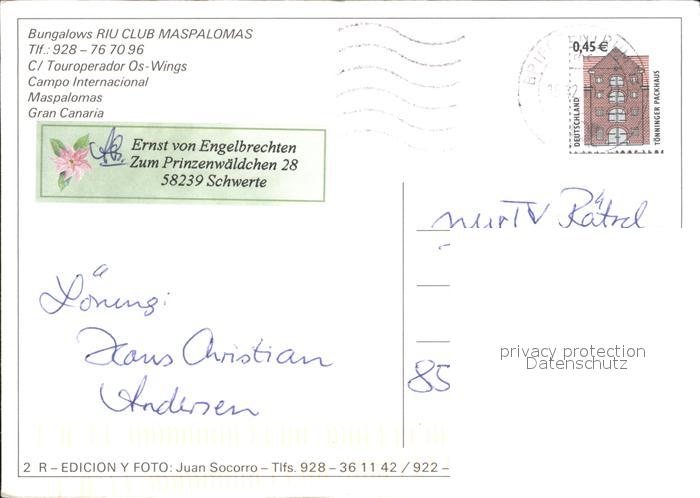 Bungalows RIU CLUB MASPALOMAS
Tlf.: 928 – 76 70 96
C/ Touroperador Os-Wings
Campo Internacional
Maspalomas
Gran Canaria
Ernst von Engelbrechten
Zum Prinzenwäldchen 28
58239 Schwerte
0,45 €
DEUTSCHLAND
TÖNNINGER PACKHAUS
nur TV Rätsel
Lösung:
Hans Christian
Andersen
85
privacy protection
Datenschutz
2 R – EDICION Y FOTO: Juan Socorro – Tlfs. 928 – 36 11 42 / 922 –